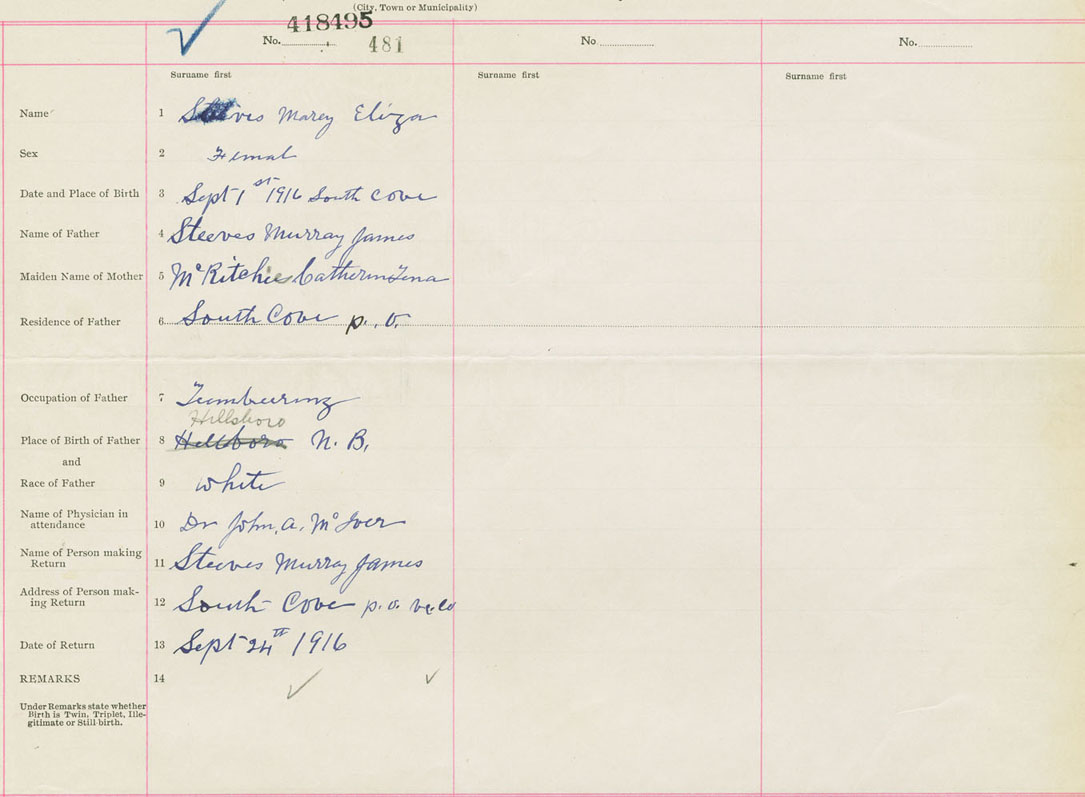 (City, Town or Municipality)
418495
No. 481 No. No.
Surname first Surname first Surname first
Name 1 Steeves Marey Eliza
Sex 2 Femal
Date and Place of Birth 3 Sept 1st 1916 South Cove
Name of Father 4 Steeves Murray James
Maiden Name of Mother 5 McRitchie Catherine Tena
Residence of Father 6 South Cove P. O.
Occupation of Father 7 Lumbering
Hillsboro
Place of Birth of Father 8 Hillboro N. B.
and
Race of Father 9 white
Name of Physician in
attendance 10 Dr John. A. McIver
Name of Person making
Return 11 Steeves Murray James
Address of Person mak-
ing Return 12 South Cove p. o.
Date of Return 13 Sept 24th 1916
REMARKS 14
Under Remarks state whether
Birth is Twin, Triplet, Ille-
gitimate or Still-birth.